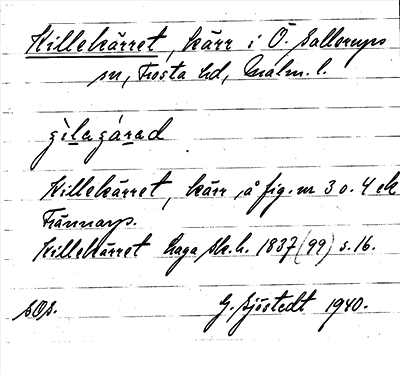 Killekärret, kärr i Ö. Sallerups
sn, Frosta hd, Malm. l.
gìlagárad
Killekärret, kärr å fig. nr 3 o. 4 ek
Killekärret Laga sk. h. 1837 (99) s. 16.
SOS. G. Sjöstedt 1940.